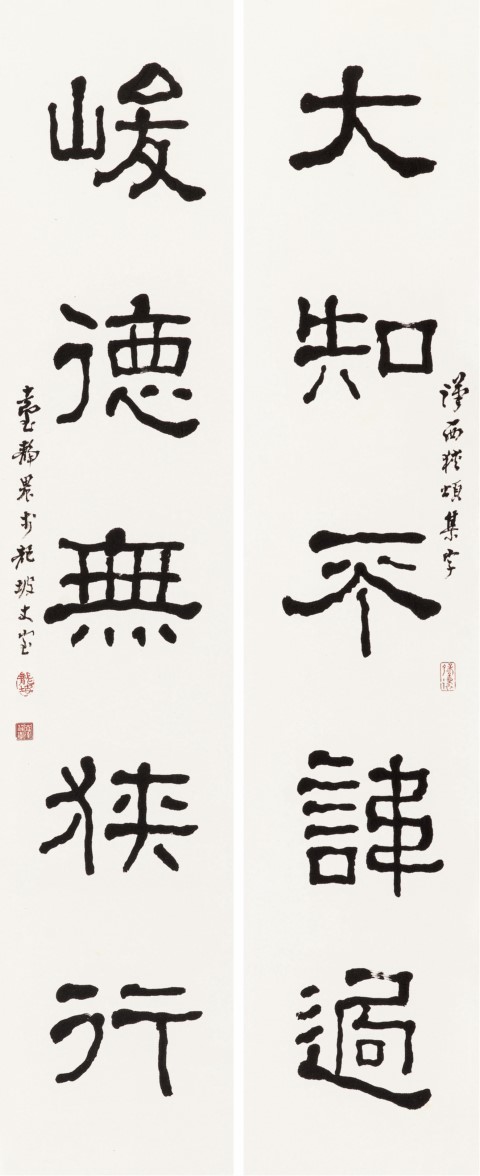 大知不諱過
漢西狹頌集字
峻德無狹行
臺靜農於龍坡丈室